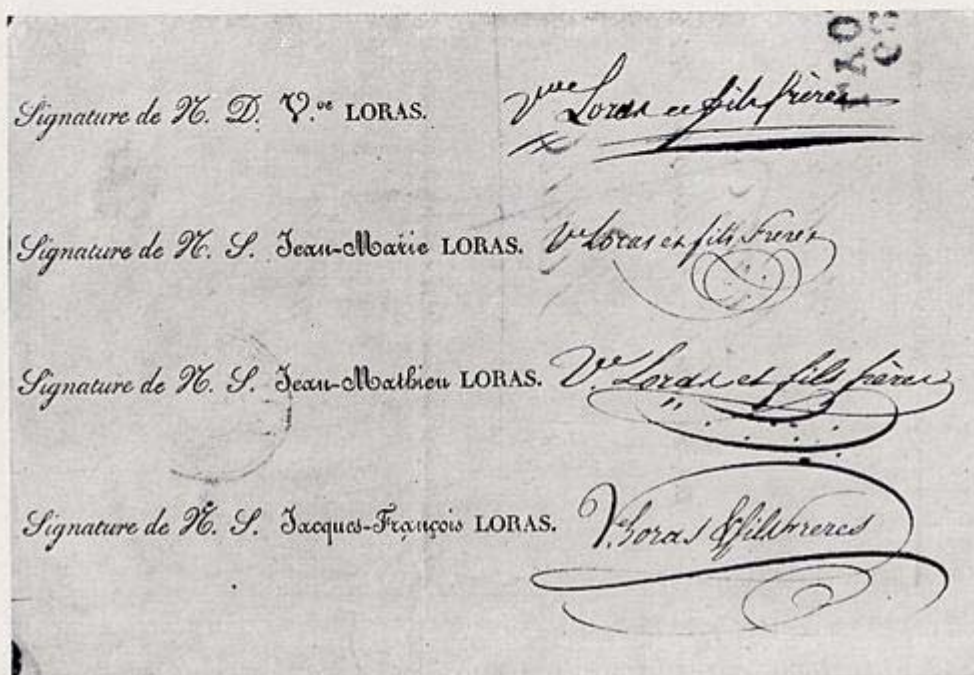 Signature de N. D. V.ve LORAS. Vve Loras et fils frères
Signature de N. S. Jean-Marie LORAS. Ve Loras et fils Freres
Signature de N. S. Jean-Mathieu LORAS. Ve Loras et fils frères
Signature de N. S. Jacques-François LORAS. Ve Loras & fils freres